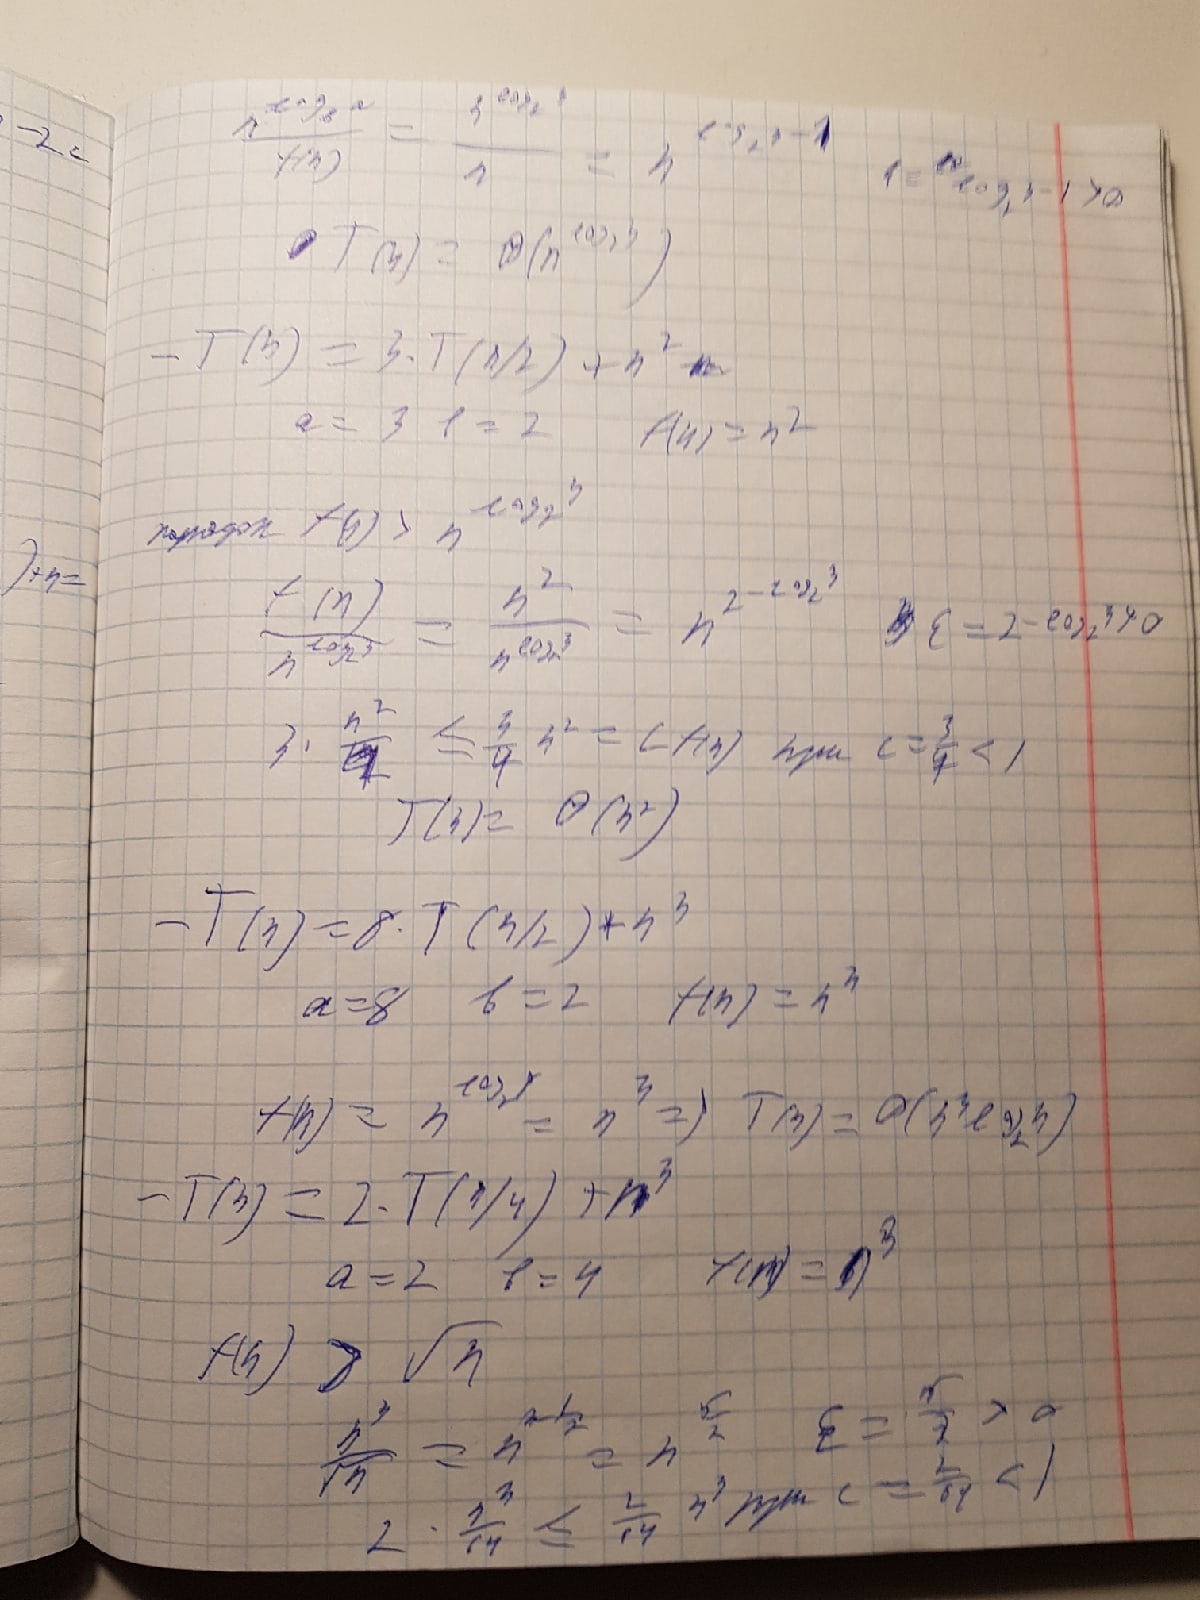 -2c
)+n=
n^{log_b a} / f(n) = n^{log_2 3} / n = n^{log_2 3 - 1}   ε = log_2 3 - 1 > 0
T(n) = Θ(n^{log_2 3})
- T(n) = 3·T(n/2) + n^2
a = 3   b = 2   f(n) = n^2
порядок f(n) > n^{log_2 3}
f(n) / n^{log_2 3} = n^2 / n^{log_2 3} = n^{2 - log_2 3}   ε = 2 - log_2 3 > 0
3 · n^2/4 ≤ 3/4 n^2 = c f(n) при c = 3/4 < 1
T(n) = Θ(n^2)
- T(n) = 8·T(n/2) + n^3
a = 8   b = 2   f(n) = n^3
f(n) = n^{log_2 8} = n^3 => T(n) = Θ(n^3 log_2 n)
- T(n) = 2·T(n/4) + n^3
a = 2   b = 4   f(n) = n^3
f(n) > √n
n^3 / √n = = n^{5/2}   ε = 5/2 > 0
2 · n^3/64 ≤ 2/64 n^3 при c = 2/64 < 1